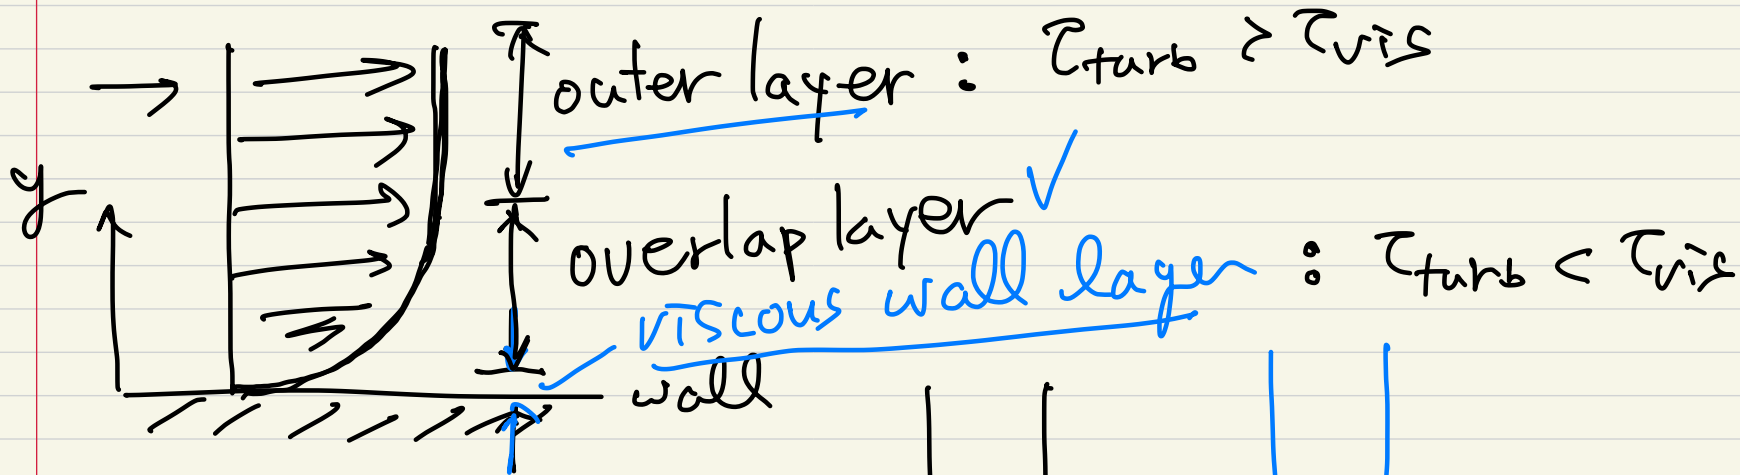 outer layer : τturb > τvis
y
overlap layer
viscous wall layer : τturb < τvis
wall